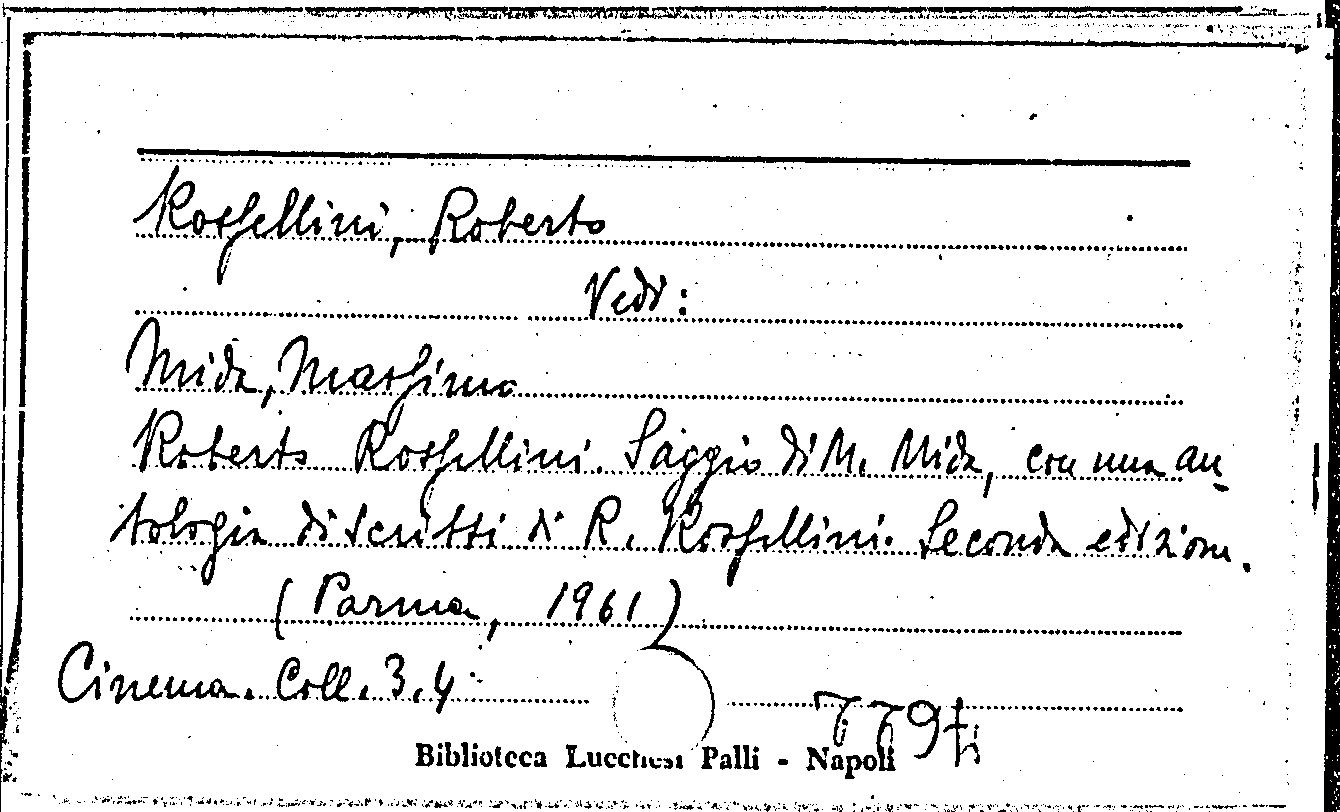 Rossellini, Roberto
Vedi:
Mida, Massimo
Roberto Rossellini. Saggio di M. Mida, con una an-
tologia di scritti di R. Rossellini. Seconda edizione.
(Parma, 1961)
Cinema. Coll. 3.4
Biblioteca Lucchesi Palli - Napoli